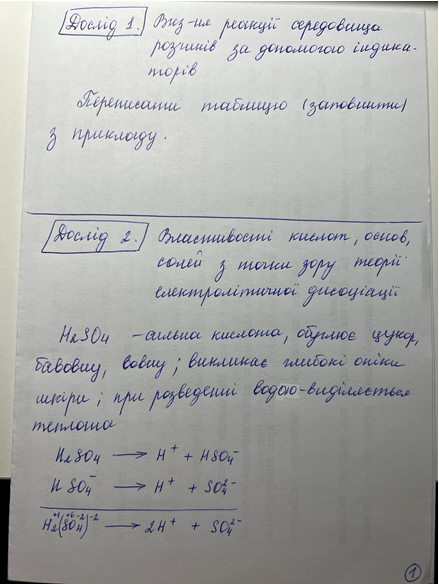 Дослід 1. Виз-ня реакції середовища
розчинів за допомогою індика-
торів
Переписати таблицю (заповнити)
з прикладу.
Дослід 2. Властивості кислот, основ,
солей з точки зору теорії
електролітичної дисоціації
H₂SO₄ – сильна кислота, обуглює цукор,
бавовну, вовну; викликає глибокі опіки
шкіри; при розведенні водою-виділяється
теплота
H₂SO₄ → H⁺ + HSO₄⁻
HSO₄⁻ → H⁺ + SO₄²⁻
H₂⁺¹(S⁺⁶O₄⁻²)⁻² → 2H⁺ + SO₄²⁻
1